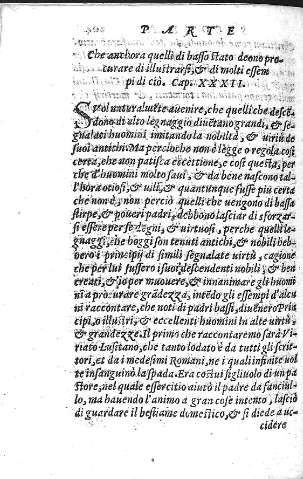 PARTE
Che anchora quelli di basso stato deono pro-
curare di illustrarsi, & di molti essem
pi di ciò. Cap. XXXII.
SVol naturalmẽte avenire, che quelli che descẽ-
dono di alto legnaggio diuẽtano grandi, & se-
gnalati huomini imitando la nobiltà, & uirtù de
suoi antichi. Ma percioche non è legge o regola cosi
certa, che non patisca eccettione, e cosi questa, per
che d'huomini molto saui, & da bene nascono tal-
l'hora otiosi, & uili, & quantunque fusse più certa
che non è, non perciò quelli che uengono di bassa
stirpe, & poueri padri, debbono lasciar di sforzar-
si essere per se degni, & uirtuosi, perche quelli le-
gnaggi, che hoggi son tenuti antichi, & nobili heb-
bero i principij di simili segnalate uirtù, cagione
che per lui fussero i suoi descendenti nobili, & ben
creati, & io per muouere, & innanimare gli huomi
ni a procurare grãdezza, intẽdo gli essempi d'alcu
ni raccontare, che noti di padri bassi, diuẽnero Prin
cipi, o illustri, & eccellenti huomini in alte uirtù,
& grandezze. Il primo che raccontaremo sarà Vi-
riato Lusitano, che tanto lodato è da tutti gli scrit-
tori, et da i medesimi Romani, ne i quali infinite uol
te insanguinò la spada. Era costui figliuolo di un pa
store, nel quale essercitio aiutò il padre da fanciul-
lo, ma hauendo l'animo a gran cose intento, lasciò
di guardare il bestiame domestico, & si diede a uc-
cidere